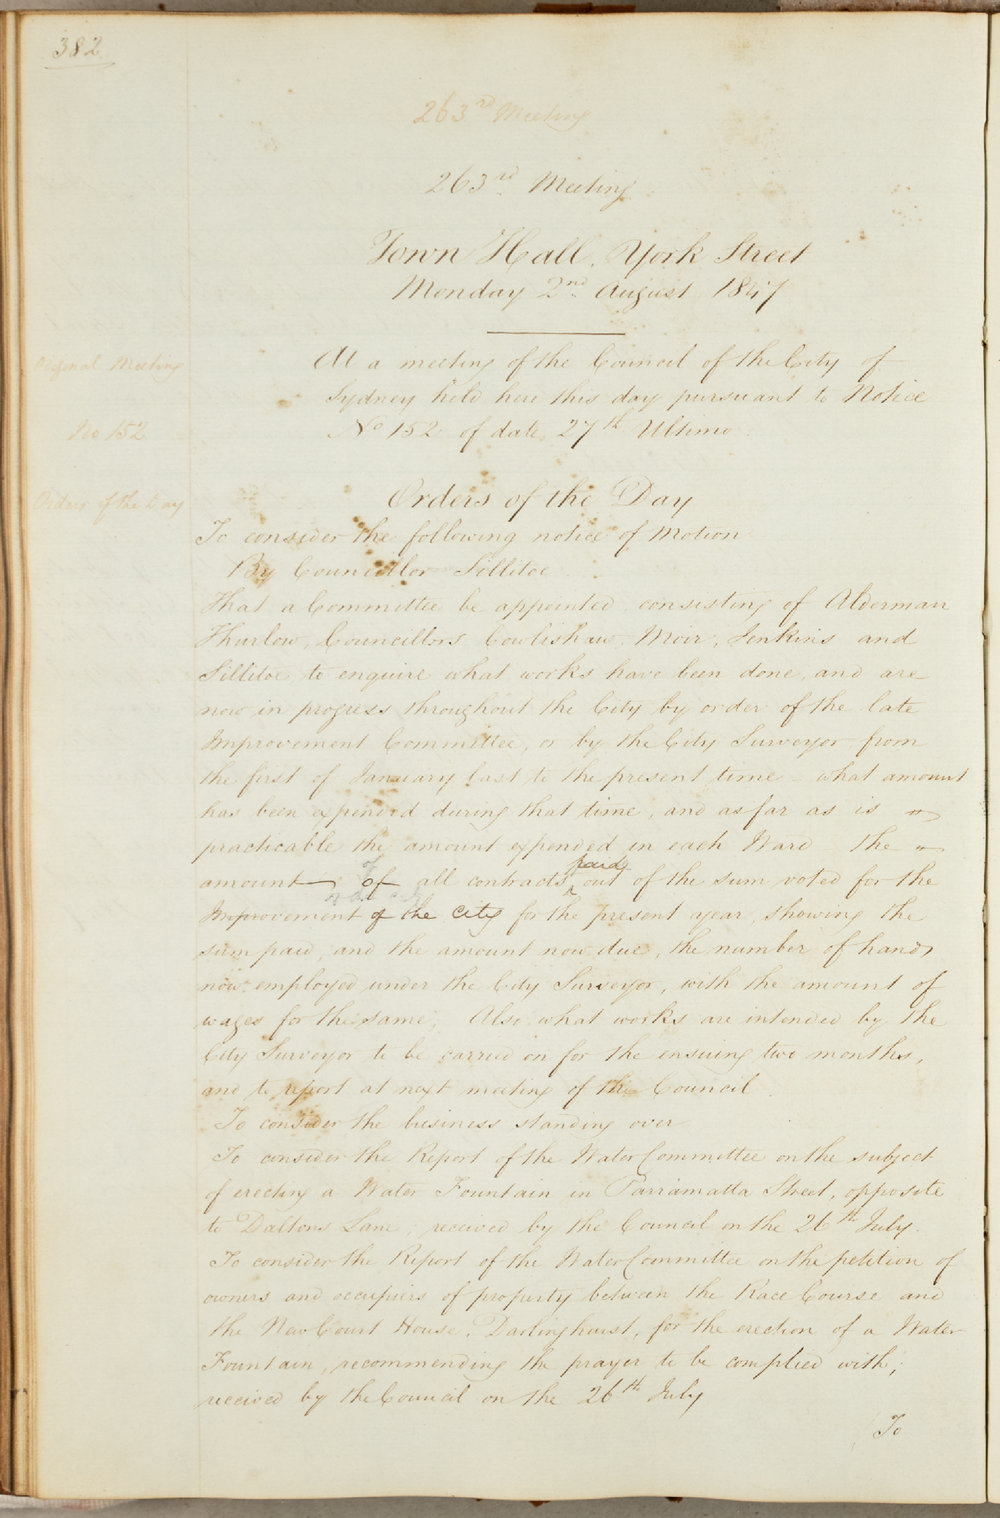 382
263rd Meeting
263rd Meeting
Town Hall, York Street
Monday 2nd August 1847
Original Meeting
At a meeting of the Council of the City of
Sydney held here this day pursuant to Notice
No 152
No 152 of date, 27th Ultimo.
Orders of the Day
Orders of the Day
To consider the following notice of Motion
By Councillor Sillitoe
That a Committee be appointed consisting of Alderman
Thurlow, Councillors Cowlishaw, Moir, Jenkins and
Sillitoe to enquire what works have been done, and are
now in progress throughout the City by order of the late
Improvement Committee, or by the City Surveyor from
the first of January last to the present time – what amount
has been expended during that time, and as far as is
practicable the amount expended in each Ward – the
amount of all contracts paid out of the sum voted for the
Improvement of the City for the present year, showing the
sum paid, and the amount now due, the number of hands
now employed under the City Surveyor, with the amount of
wages for the same, Also what works are intended by the
City Surveyor to be carried on for the ensuing two months,
and to report at next meeting of the Council.
To consider the business standing over
To consider the Report of the Water Committee on the subject
of erecting a Water Fountain in Parriamatta Street, opposite
to Daltons Lane, received by the Council on the 26th July.
To consider the Report of the Water Committee on the petition of
owners and occupiers of property between the Race Course and
the New Court House, Darlinghurst, for the erection of a Water
Fountain, recommending the prayer to be complied with;
received by the Council on the 26th July
To